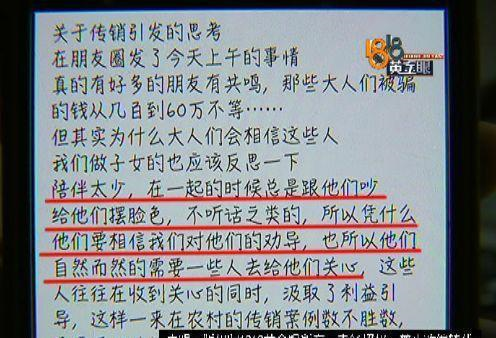 关于传销引发的思考
在朋友圈发了今天上午的事情
真的有好多的朋友有共鸣，那些大人们被骗
的钱从几百到60万不等……
但其实为什么大人们会相信这些人
我们做子女的也应该反思一下
陪伴太少，在一起的时候总是跟他们吵
给他们摆脸色，不听话之类的，所以凭什么
他们要相信我们对他们的劝导，也所以他们
自然而然的需要一些人去给他们关心，这些
人往往在收到关心的同时，汲取了利益引
导，这样一来在农村的传销案例数不胜数，
1818
黄金眼